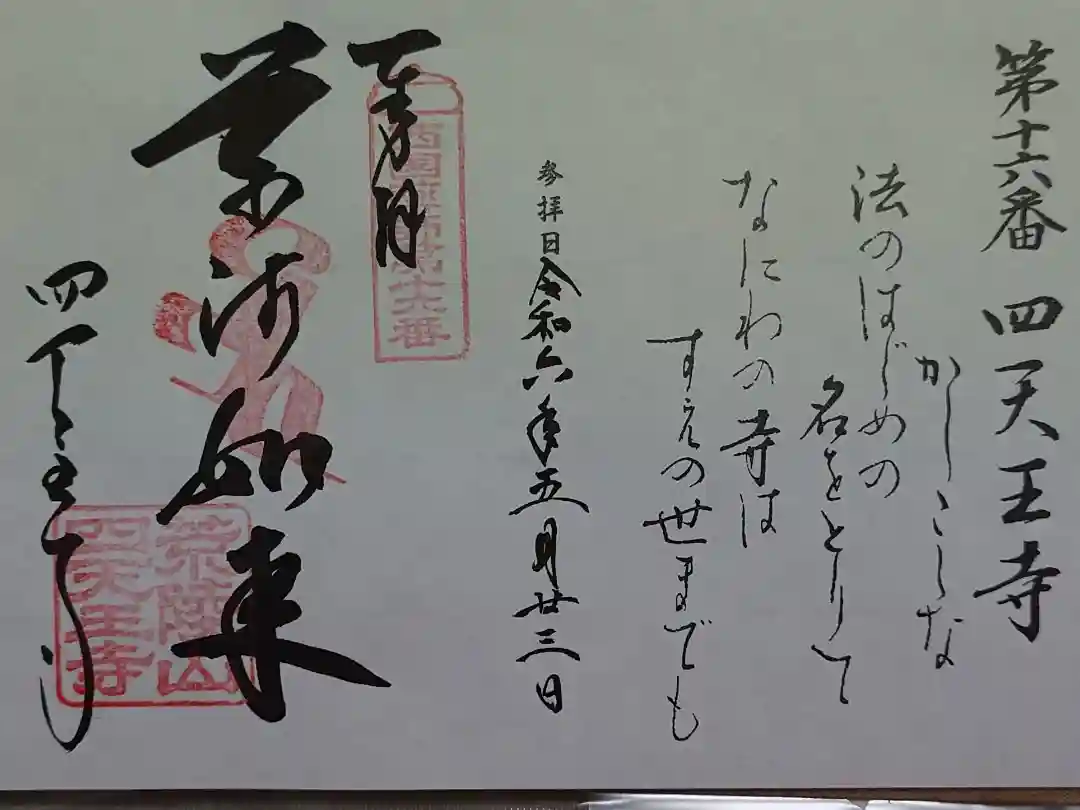 第十六番 四天王寺
かしこしな
法のはじめの
名をとりて
なにわの寺は
すえの世までも
参拝日令和六年五月廿三日
奉拝
西国薬師第十六番
薬師如来
四天王寺
荒陵山
四天王寺